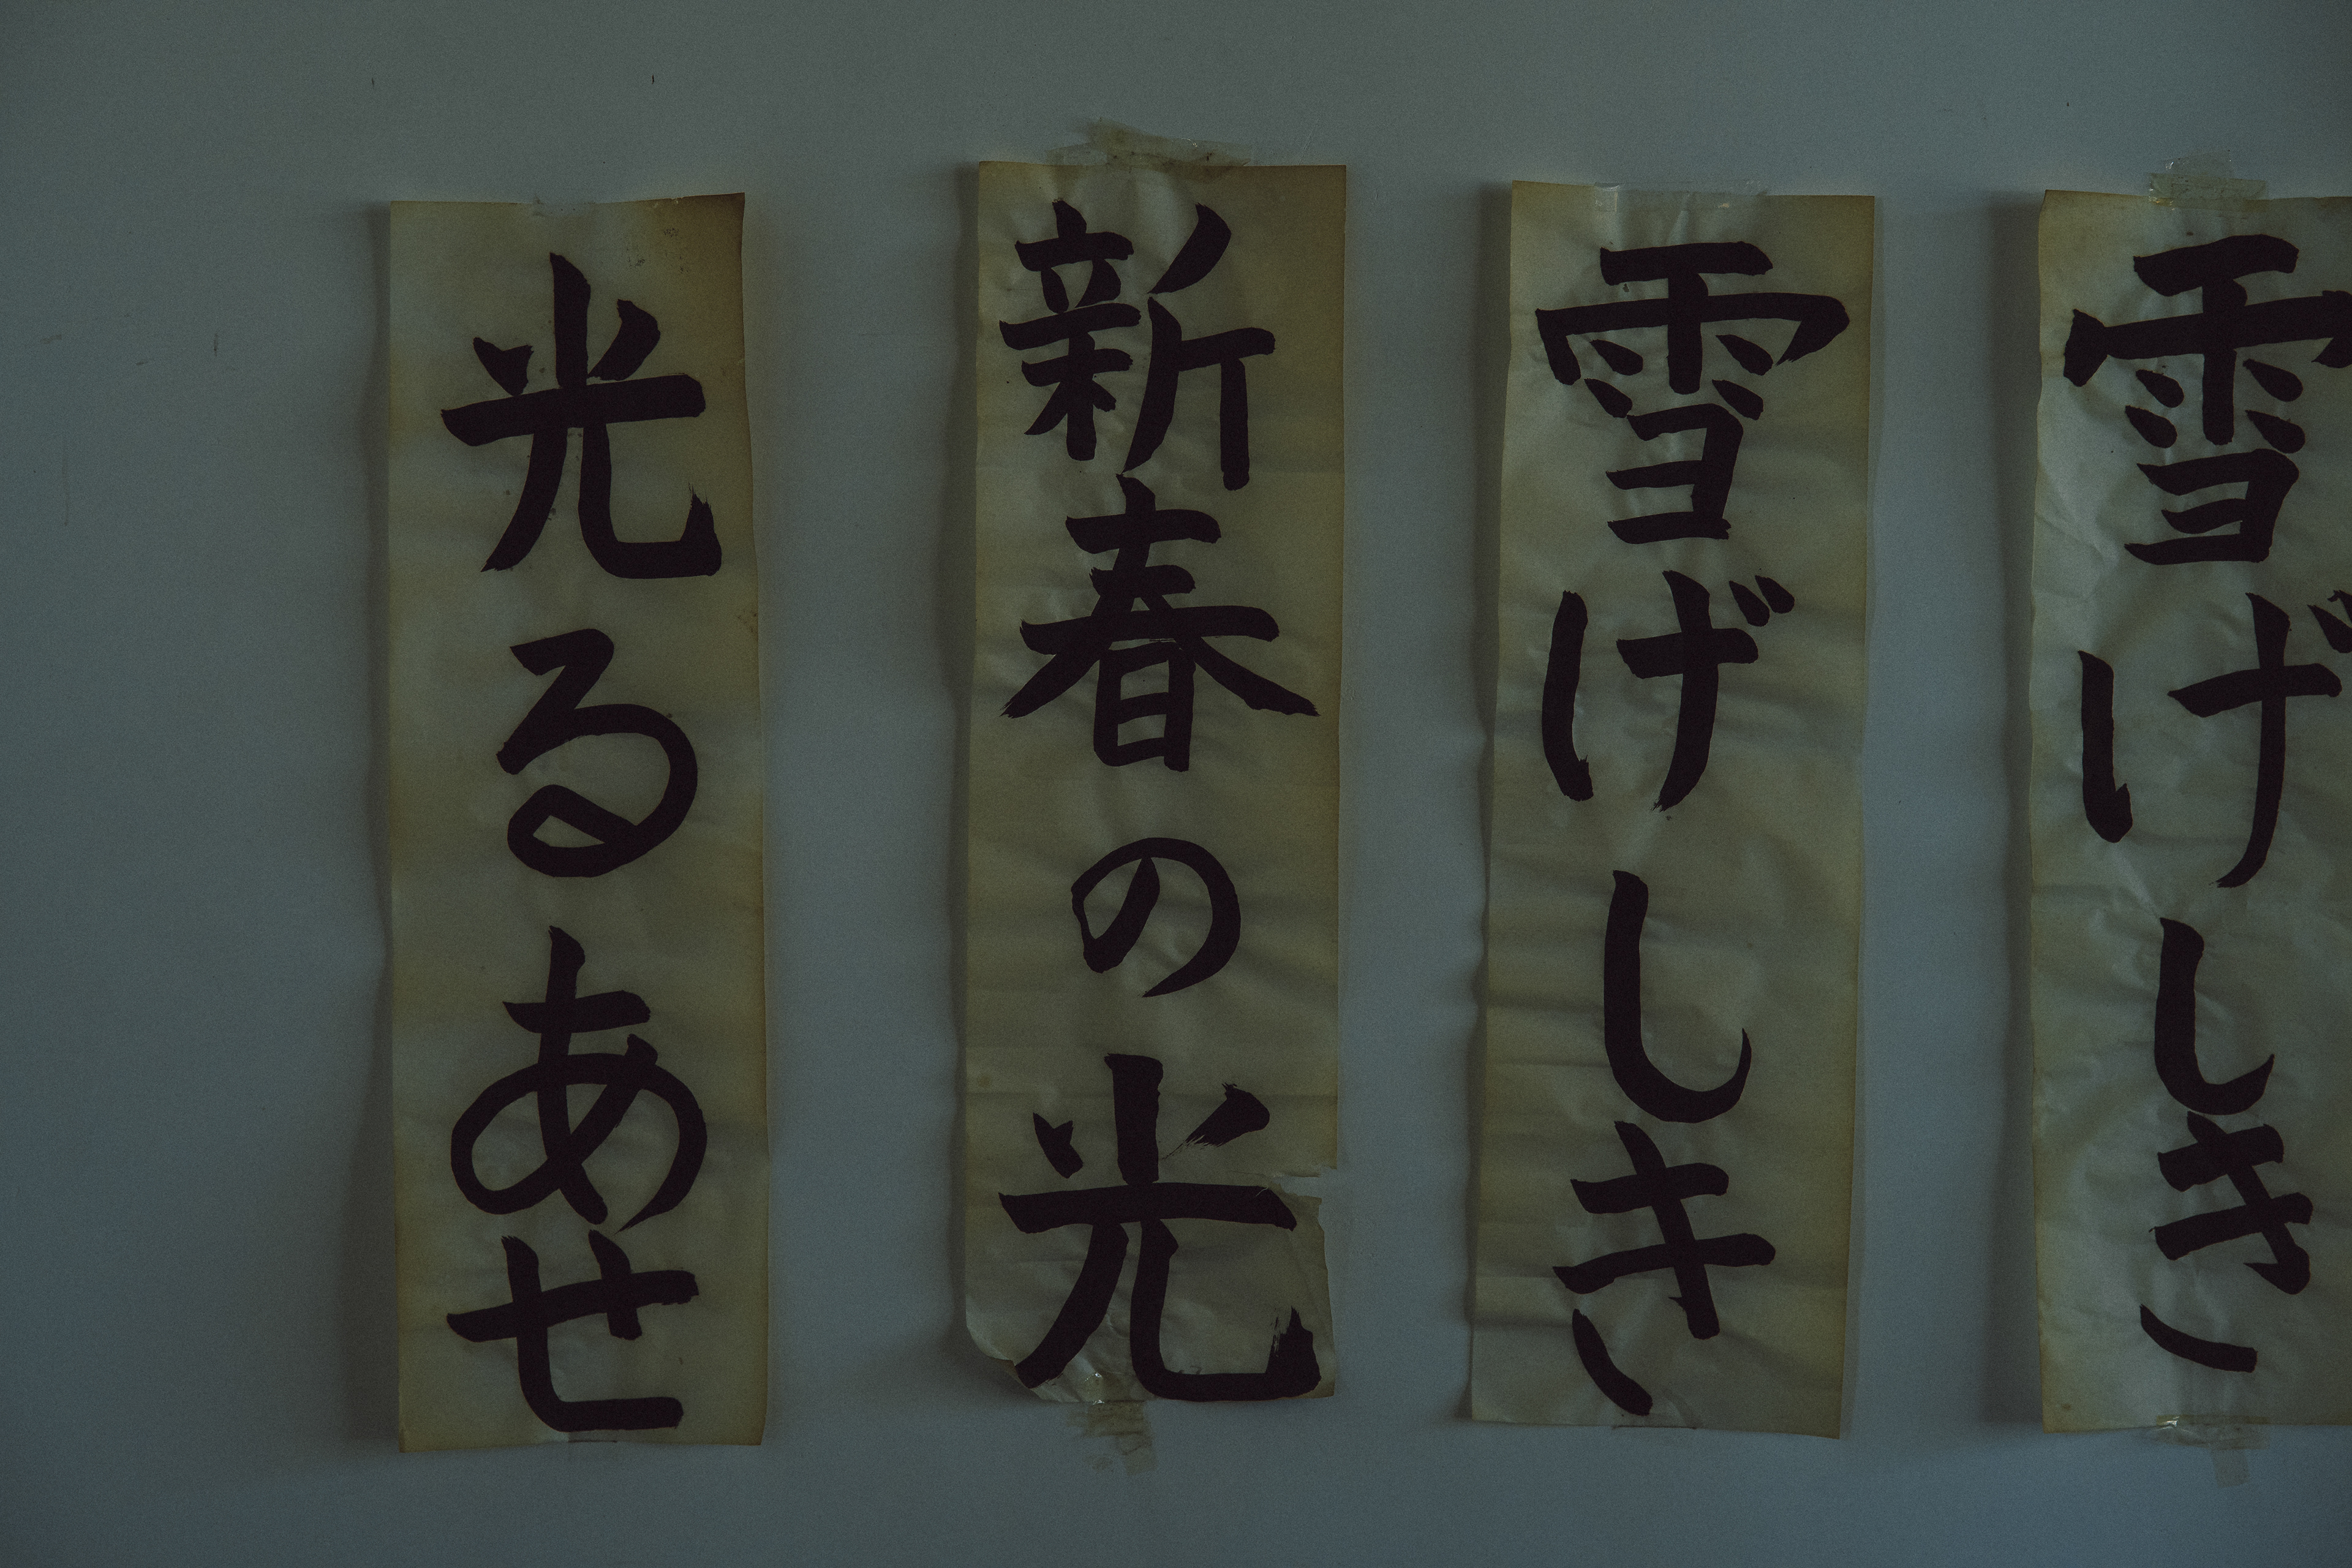 雪げしき
雪げしき
新春の光
光るあせ